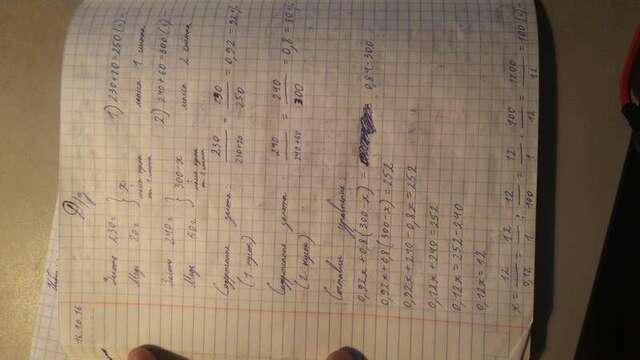 16.10.16
Д/з
Золото 230г } x
Медь 20г
1) 230+20=250(г)-
масса 1 слитка
Золото 240г } 300-x
Медь 60г
2) 240+60=300(г)-
масса 2 слитка
Содержание золота
(1 кусок)
230 / 230+20 = 230 / 250 = 0,92 = 92%
Содержание золота
(2 кусок)
240 / 240+60 = 240 / 300 = 0,8 = 80%
Составим уравнение:
0,92x+0,8(300-x) = 0,84·300
0,92x+0,8(300-x)=252
0,92x+240-0,8x=252
0,12x+240=252
0,12x=252-240
0,12x=12
x = 12 / 0,12 = 12 / 1 : 12 / 100 = 12 / 1 · 100 / 12 = 1200 / 12 = 100(г)-